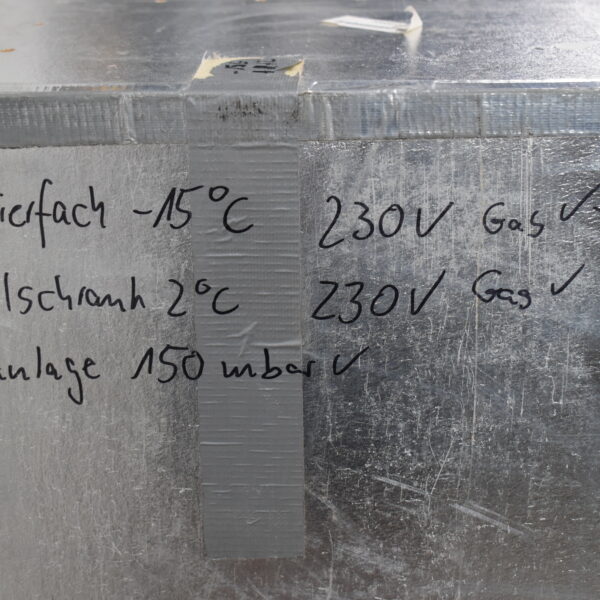 ierfach -15°C 230V Gas ✓
lschrank 2°C 230V Gas ✓
anlage 150 mbar ✓